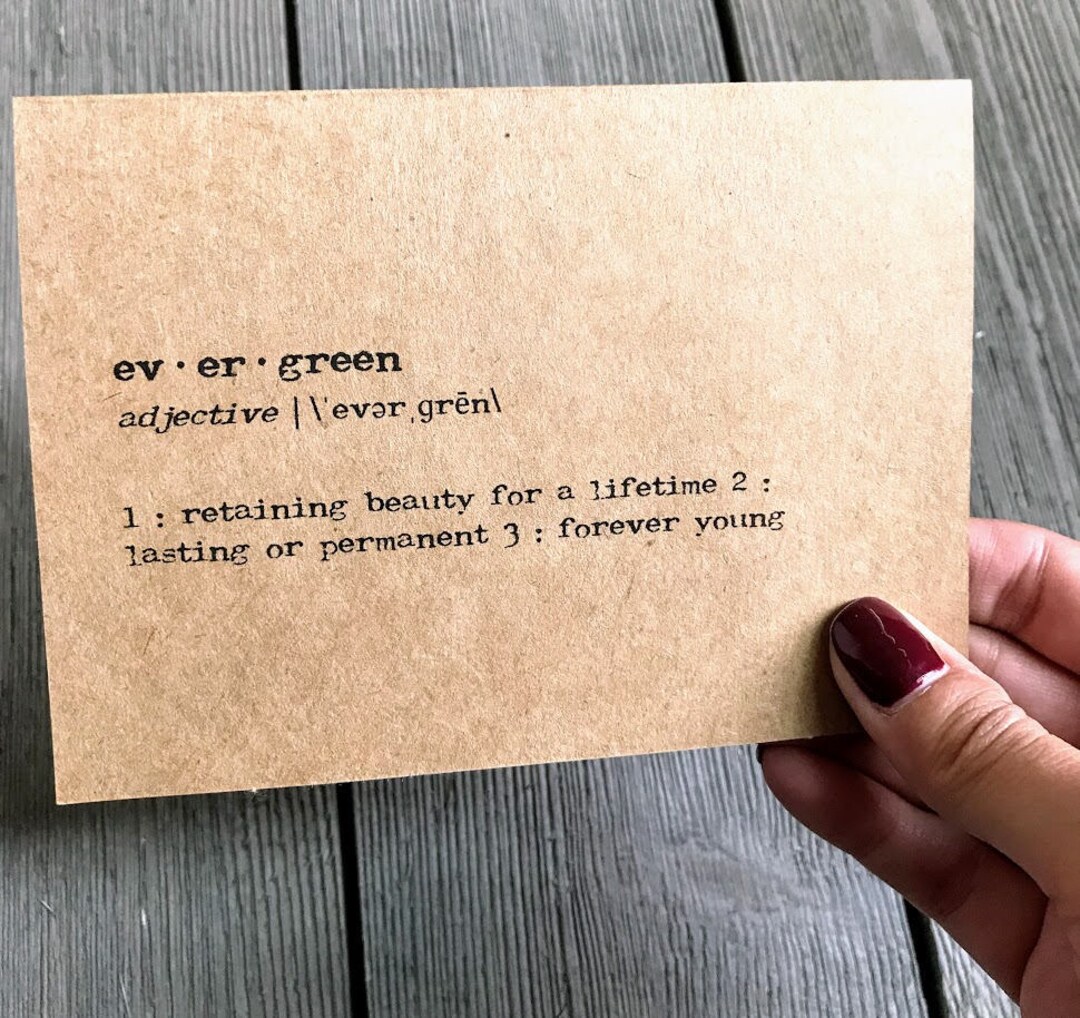 ev·er·green
adjective | \ˈevərˌgrēn\
1 : retaining beauty for a lifetime 2 :
lasting or permanent 3 : forever young